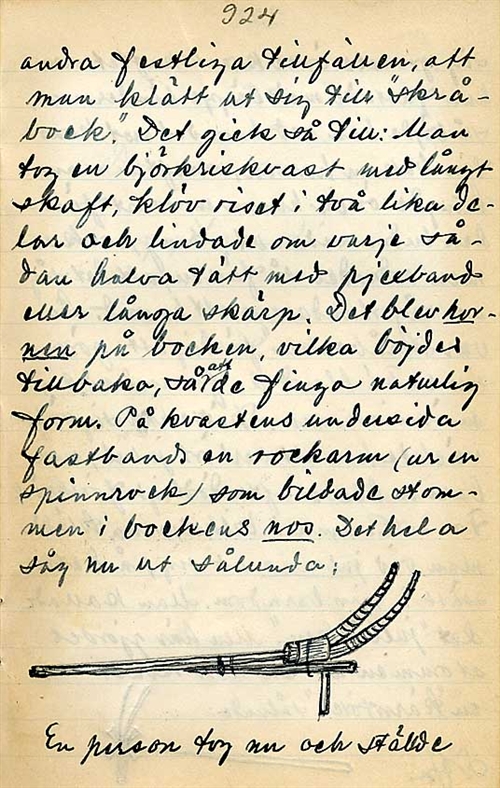 924
andra festliga tillfällen, att
man klätt ut sig till "skrå-
bock." Det gick så till: Man
tog en björkriskvast med långt
skaft, klöv riset i två lika de-
lar och lindade om varje så-
dan halva tätt med pjexband
eller långa skärp. Det blev hor-
nen på bocken, vilka böjdes
tillbaka, så att de finga naturlig
form. På kvastens undersida
fastbands en rockarm (ur en
spinnrock) som bildade stom-
men i bockens nos. Det hela
såg nu ut sålunda:
En person tog nu och ställde